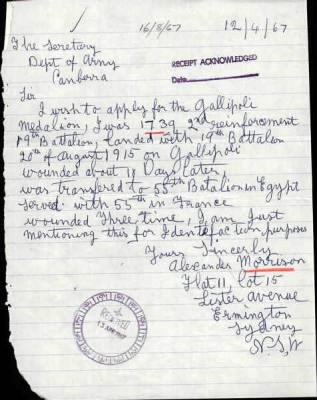 16/8/67
12/4/67
The Secretary
Dept of Army
Canberra
RECEIPT ACKNOWLEDGED
Date
Sir
I wish to apply for the Gallipoli
Medalion, I was 1739 2nd reinforcement
19th Battalion, landed with 19th Battalion
20th of August 1915 on Gallipoli
wounded about 11 Days later
was transfered to 55th Batalion in Egypt
served with 55th in France
wounded three time, I am Just
mentioning this for purposes
Yours Sincerly
Alexander Morrison
Flat 11, Lot 15
Lister Avenue
Ermington
Sydney
N.S.W
RECEIVED